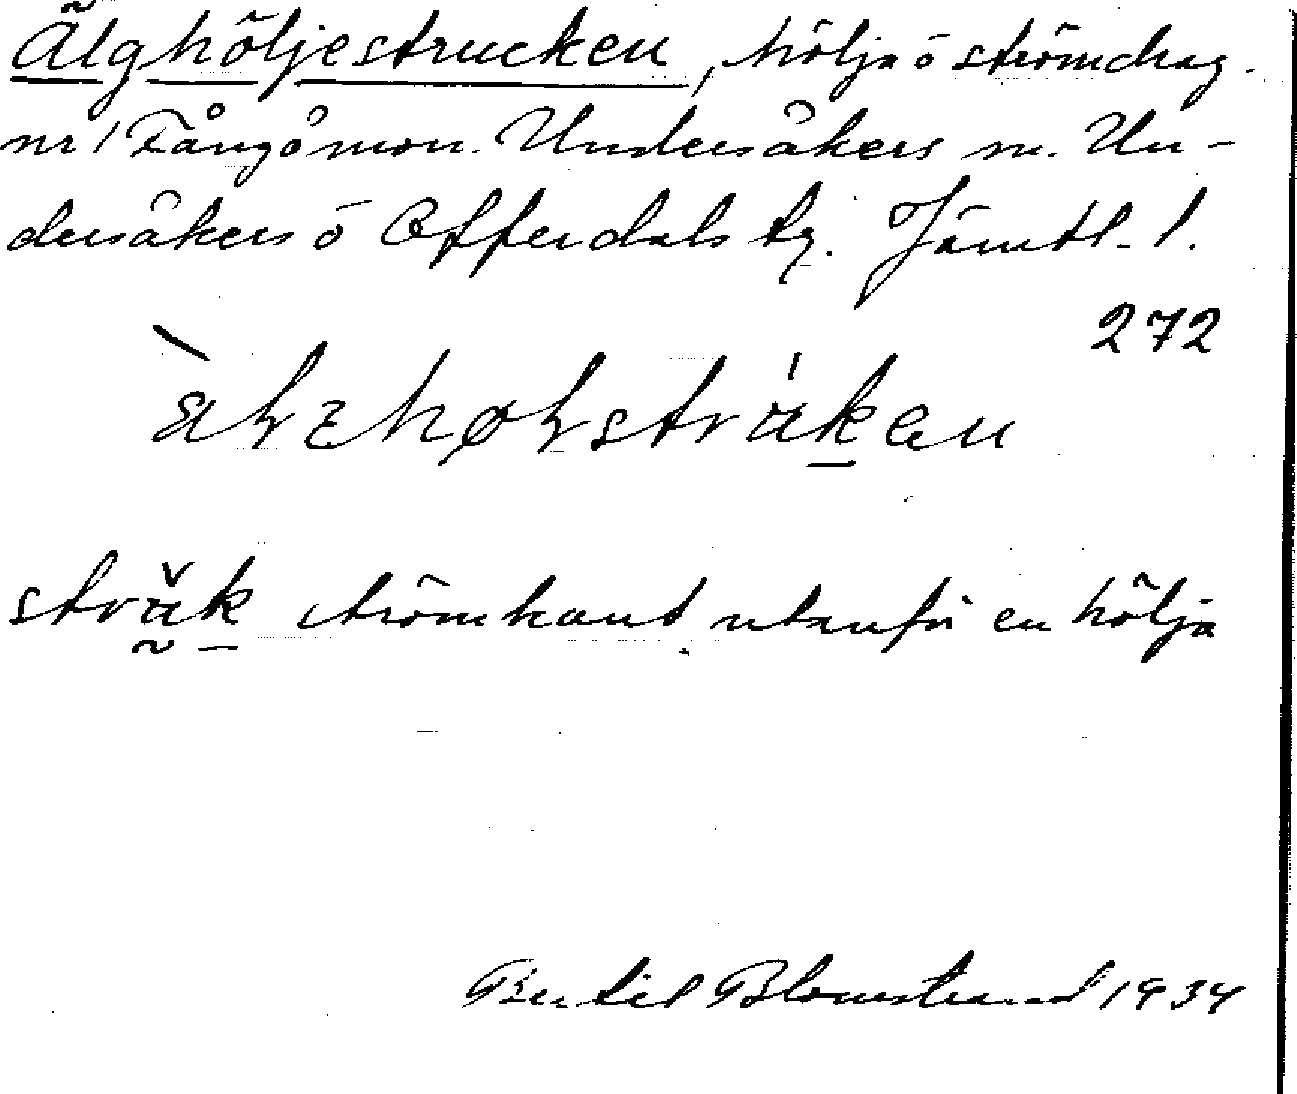 Älghöljestrucken, hölja ö strömdrag.
nr 1 Fångåmon. Undersåkers sn. Un-
dersåkers ö Offerdals tg. Jämtl. l.
272
stråk strömkant utanför en hölja
Bertil Blomstrand 1934